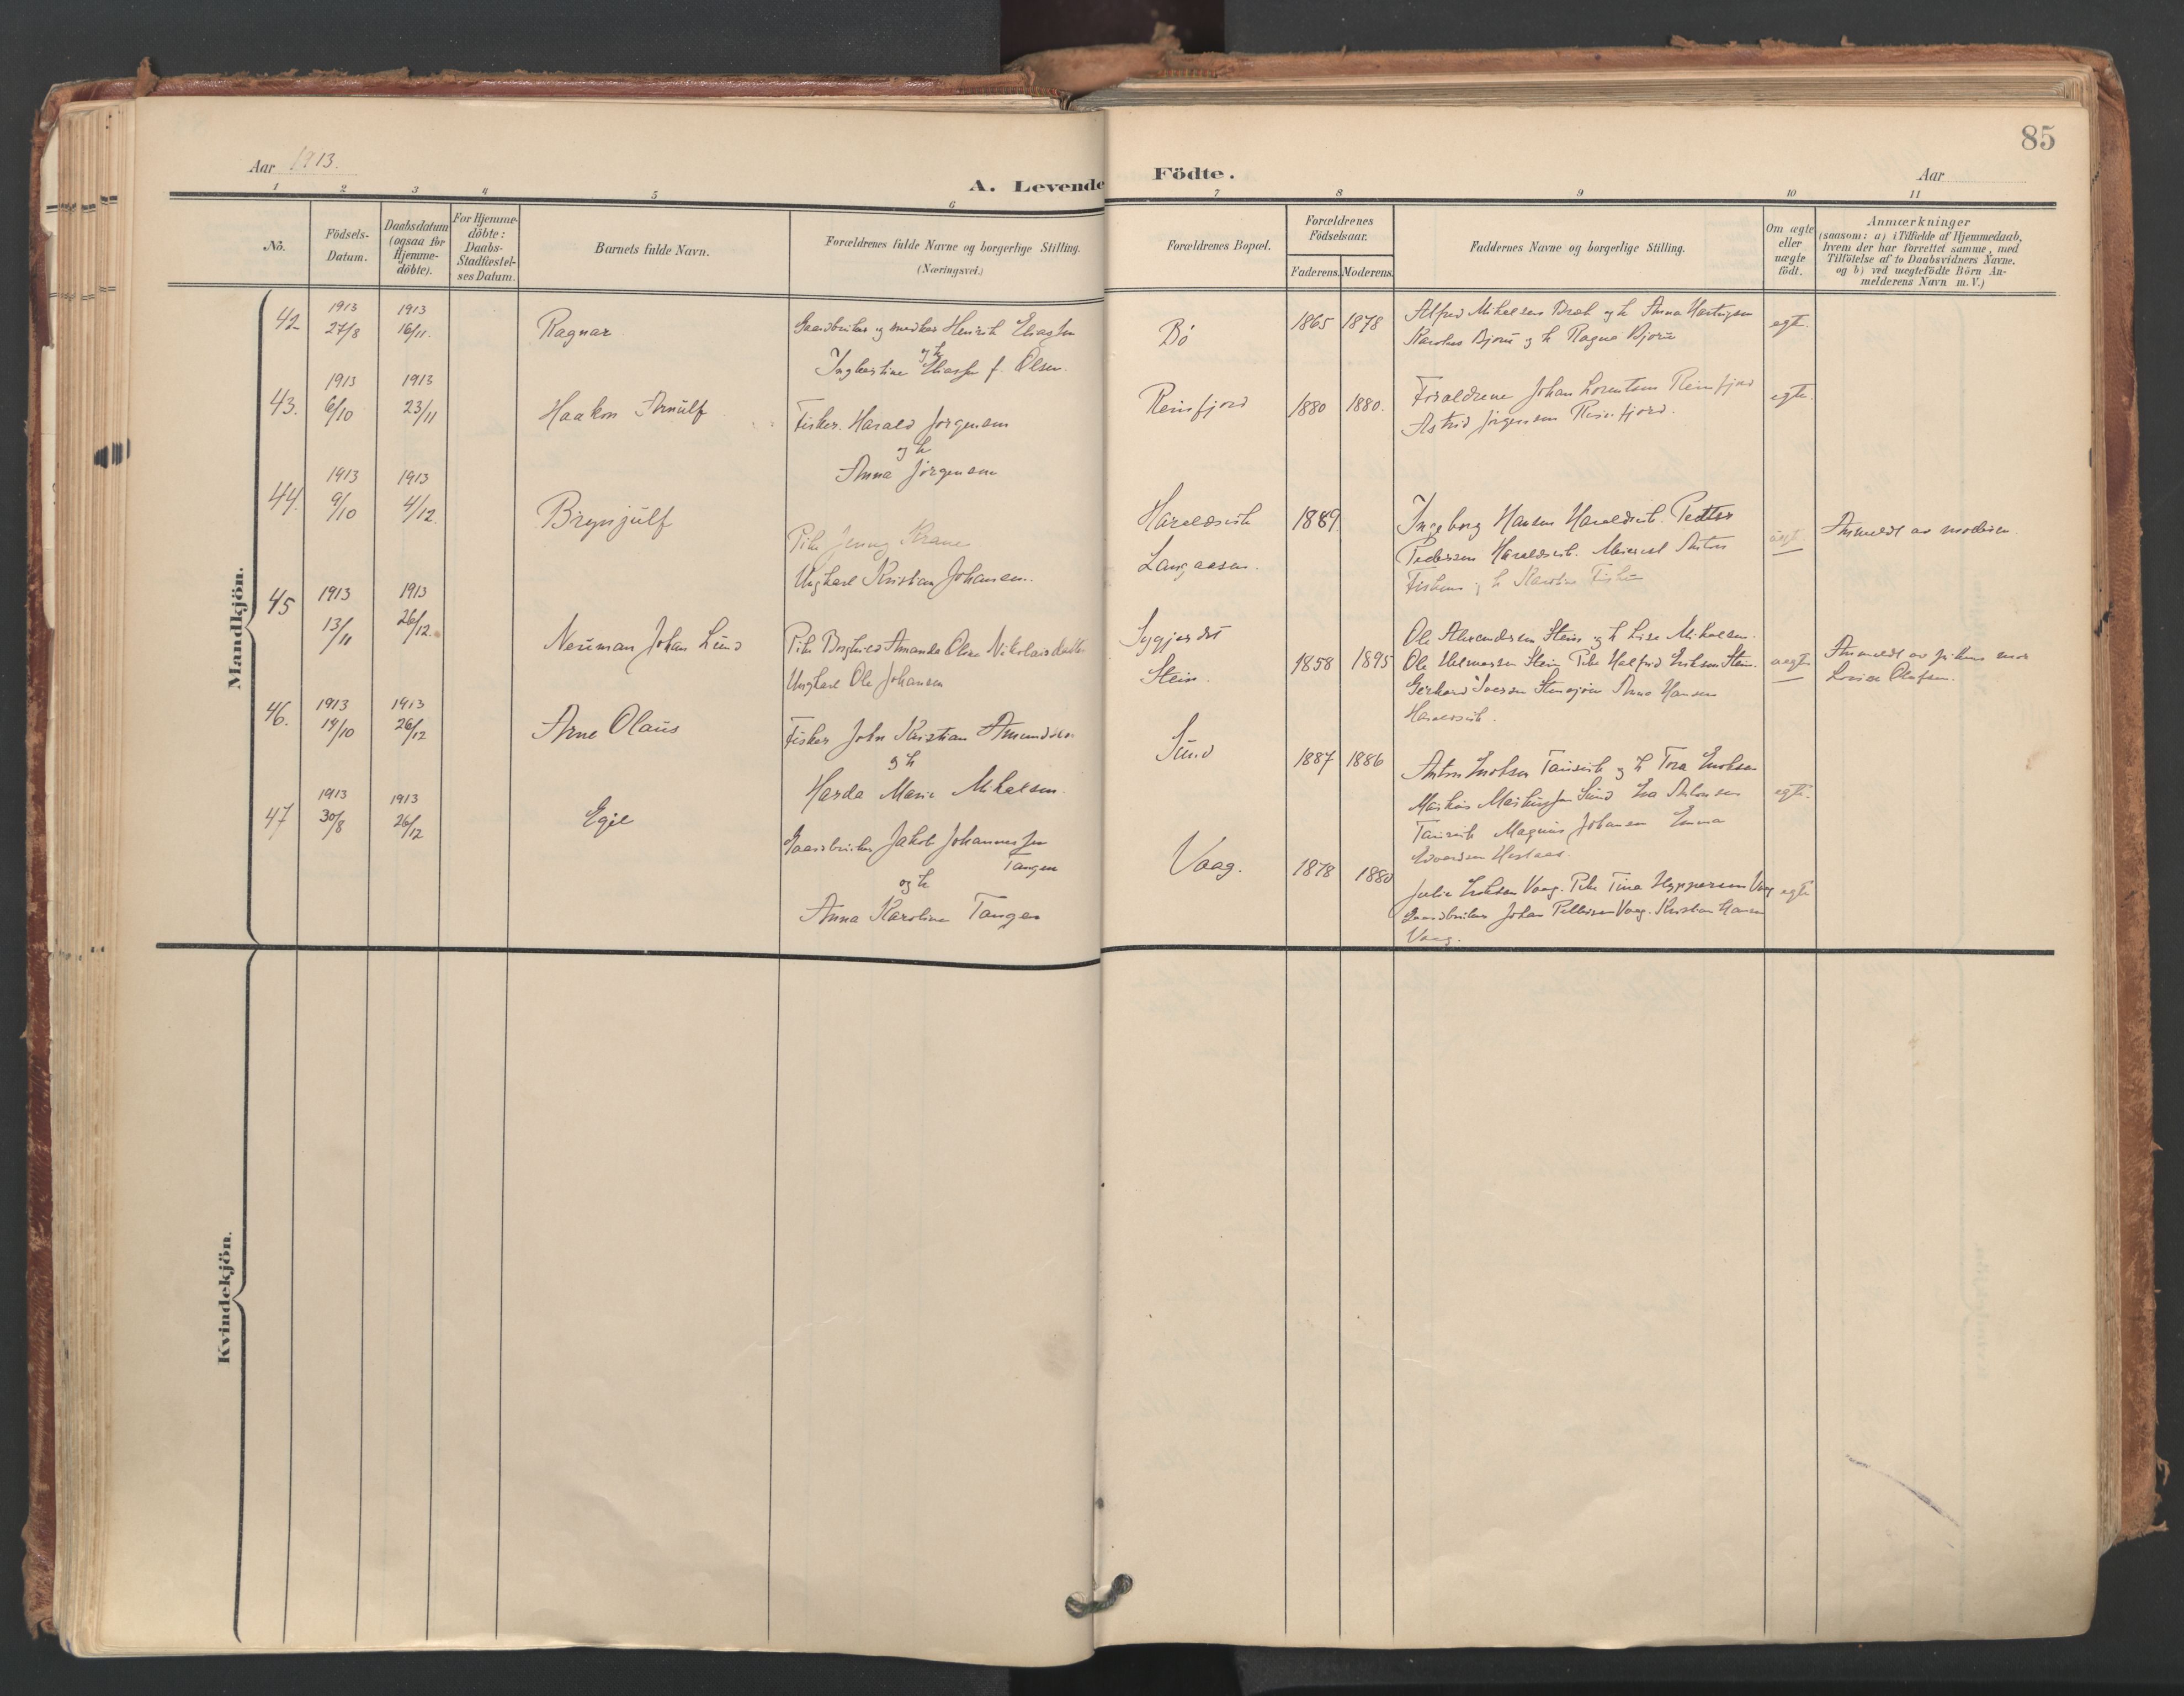 85
Aar 1913.
A. Levende Födte.
Aar
1 2 3 4 5 6 7 8 9 10 11
Nö.
Födsels-
Datum.
Daabsdatum
(ogsaa for
Hjemme-
döbte).
For Hjemme-
döbte:
Daabs-
Stadfæstel-
ses Datum.
Barnets fulde Navn.
Forældrenes fulde Navne og borgerlige Stilling.
(Næringsvei.)
Forældrenes Bopæl.
Forældrenes
Födselsaar.
Faderens. Moderens.
Faddernes Navne og borgerlige Stilling.
Om ægte
eller
uægte
födt.
Anmærkninger
(saasom: a) i Tilfælde af Hjemmedaab,
hvem der har forrettet samme, med
Tilföielse af to Daabsvidners Navne.
og b) ved uægtefödte Börn An-
melderens Navn m. V.)
Mandkjön.
42
1913
27/8
1913
16/11.
Ragnar
Gaardbruker og snedker Henrik Eliassen
og h
Ingbertine Eliassen f. Olsen.
Bö
1865 1878
Alfred Mikelsen Bræk og h Anna Hartvigsen
Karolus Bjoru og h Ragna Bjoru
egte.
43.
1913
6/10
1913
23/11
Haakon Arnulf
Fisker. Harald Jörgensen
og h
Anna Jörgensen
Reinfjord
1880 1880.
Foraldrene Johan Lorentsen Reinfjord
Astrid Jörgensen Reinfjord.
egte.
44.
1913
9/10
1913
4/12.
Brynjulf
Pike Jenny Krane
Ungkarl Kristian Johansen.
Haraldsvik
Langaasen.
1889
Ingeborg Hansen Haraldsvik. Petter
Pedersen Haraldsvik. Meierist Anton
Fiskum og h Karoline Fiskum
uegt.
Anmeldt av moderen.
45
1913
13/11
1913
26/12.
Neuman Johan Lund
Pike Borghild Amanda Olina Nikolaisdatter
Ungkarl Ole Johansen
Sygjerdet
Stein.
1858 1895
Ole Alexandersen Stein og h Lise Mikalsen.
Ole Helmersen Stein Pike Halfrid Eriksen Stein.
Gerhard Iversen Anna Hansen
Haraldsvik.
uegte
Anmeldt av pikens mor
Lovise Olufsen.
46.
1913
14/10
1913
26/12
Arne Olaus
Fisker John Kristian Amundsen
og h
Harda Marie Mikalsen.
Sund
1887 1886
Anton Enoksen Taurvik og h Tora Enoksen
Markus Markussen Sund Antonsen
Taurvik Magnus Johansen Emma
Edvardsen
egte.
47
1913
30/8
1913
26/12
Egil
Gaardbruker Jakob Johannessen
Tangen
og h
Anna Karoline Tangen
Vaag.
1878 1880
Julie Eriksen Vaag. Pike Tina Vaag
Gaardbruker Johan Pettersen Vaag. Kristian Hansen
Vaag.
egte
Kvindekjön.